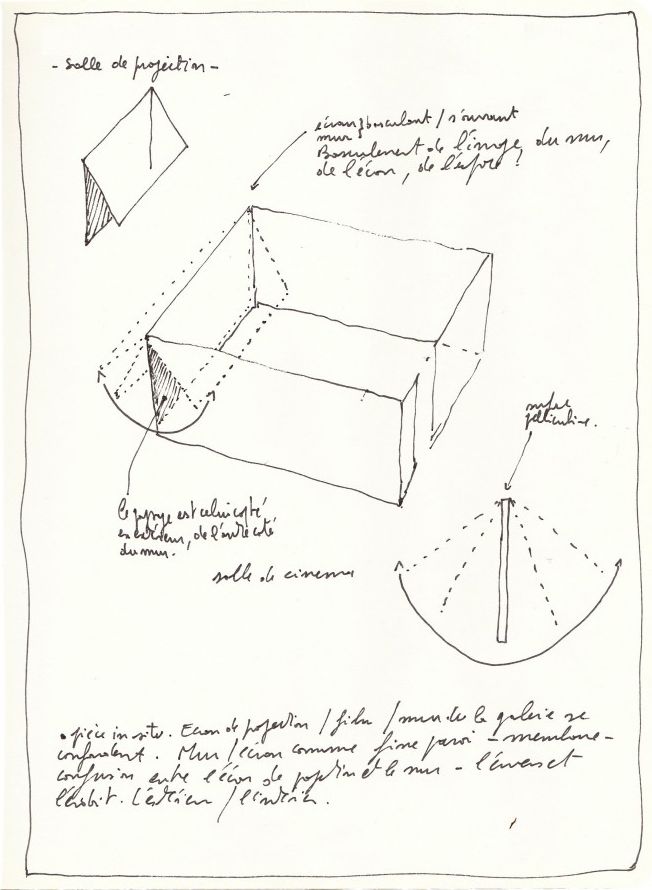 - salle de projection -
écran} basculant / s'ouvrant
mur
Basculement de l'image, du mur,
de l'écran, de l'espace !
surface
pelliculaire.
le paysage est celui capté
en extérieur, de l'autre coté
du mur.
salle de cinema
• pièce in situ. Ecran de projection / film / murs de la galerie se
confondent. Mur / écran comme fine paroi - membrane -
confusion entre l'écran de projection et le mur - l'envers et
l'endroit. L'extérieur / l'intérieur.